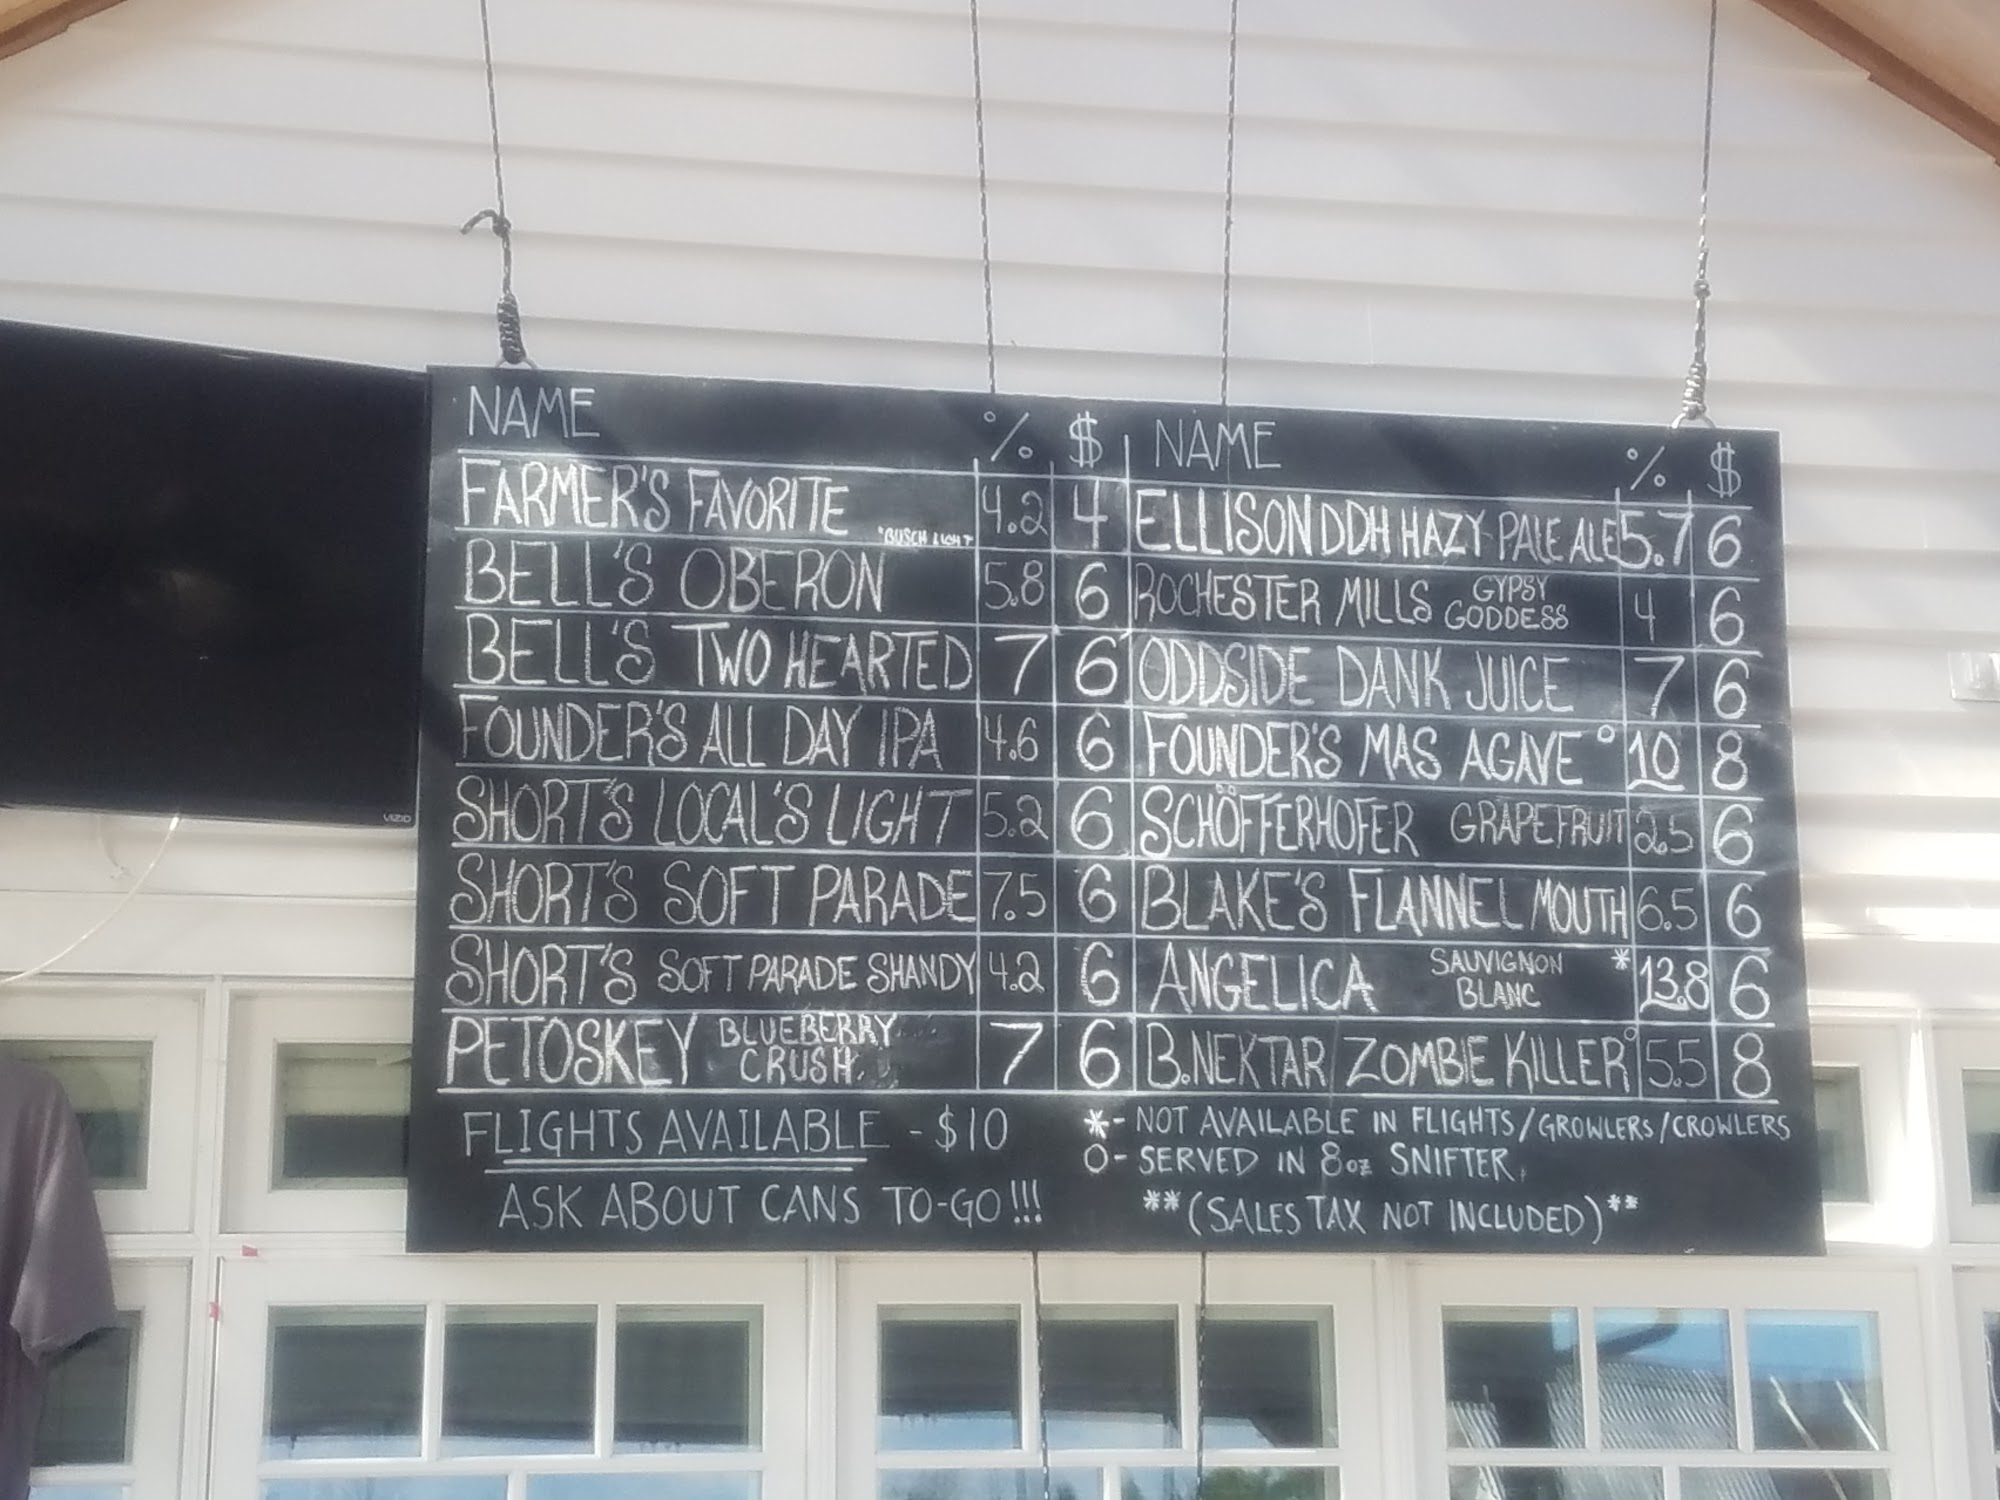 NAME % $
FARMER'S FAVORITE 4.2 4
*BUSCH LIGHT
BELL'S OBERON 5.8 6
BELL'S TWO HEARTED 7 6
FOUNDER'S ALL DAY IPA 4.6 6
SHORT'S LOCAL'S LIGHT 5.2 6
SHORT'S SOFT PARADE 7.5 6
SHORT'S SOFT PARADE SHANDY 4.2 6
PETOSKEY BLUEBERRY CRUSH 7 6
FLIGHTS AVAILABLE - $10
ASK ABOUT CANS TO-GO!!!
NAME % $
ELLISON DDH HAZY PALE ALE 5.7 6
ROCHESTER MILLS GYPSY GODDESS 4 6
ODDSIDE DANK JUICE 7 6
FOUNDER'S MAS AGAVE ° 10 8
SCHÖFFERHOFER GRAPEFRUIT 2.5 6
BLAKE'S FLANNEL MOUTH 6.5 6
ANGELICA SAUVIGNON BLANC * 13.8 6
B.NEKTAR ZOMBIE KILLER ° 5.5 8
*- NOT AVAILABLE IN FLIGHTS/GROWLERS/CROWLERS
O- SERVED IN 8oz SNIFTER.
**(SALES TAX NOT INCLUDED)**
VIZIO